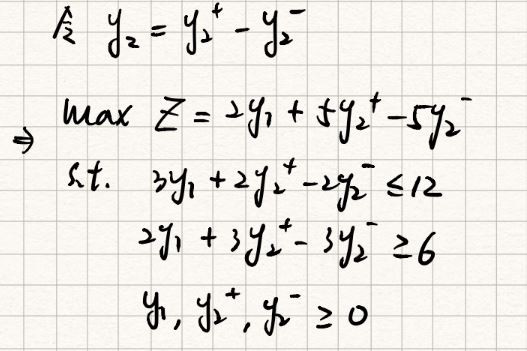 令 y₂ = y₂⁺ - y₂⁻
⇒ max Z = 2y₁ + 5y₂⁺ - 5y₂⁻
s.t. 3y₁ + 2y₂⁺ - 2y₂⁻ ≤ 12
2y₁ + 3y₂⁺ - 3y₂⁻ ≥ 6
y₁, y₂⁺, y₂⁻ ≥ 0